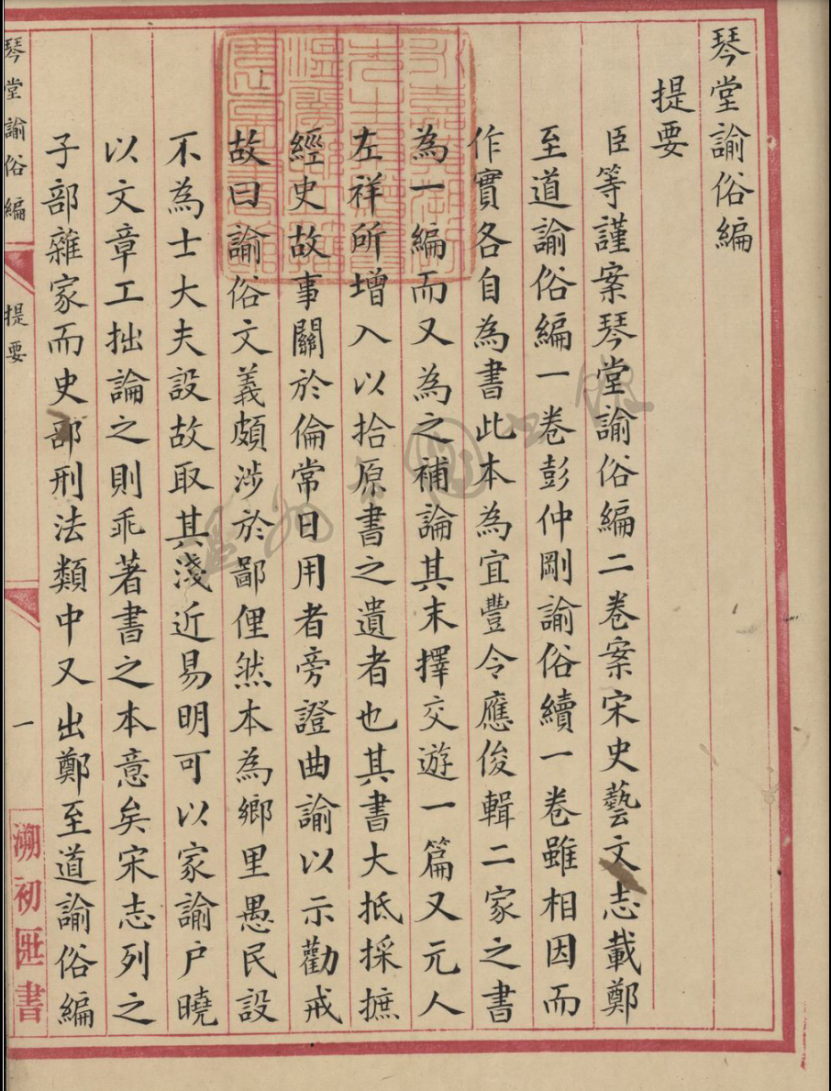 琴堂諭俗編
提要
臣等謹案琴堂諭俗編二卷案宋史藝文志載鄭
至道諭俗編一卷彭仲剛諭俗續一卷雖相因而
作實各自為書此本為宜豐令應俊輯二家之書
為一編而又為之補論其末擇交遊一篇又元人
左祥所增入以拾原書之遺者也其書大抵採摭
經史故事關於倫常日用者旁證曲諭以示勸戒
故曰諭俗文義頗涉於鄙俚然本為鄉里愚民設
不為士大夫設故取其淺近易明可以家諭户曉
以文章工拙論之則乖著書之本意矣宋志列之
子部雜家而史部刑法類中又出鄭至道諭俗編
琴堂諭俗編
提要
一
溯初匧書